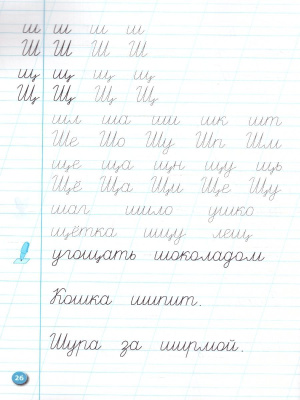 ш ш ш ш
Ш Ш Ш Ш
щ щ щ щ
Щ Щ Щ Щ
шл ша ши шк шт
Ше Шо Шу Шп Шм
ще ща щн щу щь
Щё Ща Щи Ще Щу
шаг шило ушко
щётка ищу лещ
угощать шоколадом
Кошка шипит.
Шура за ширмой.
26